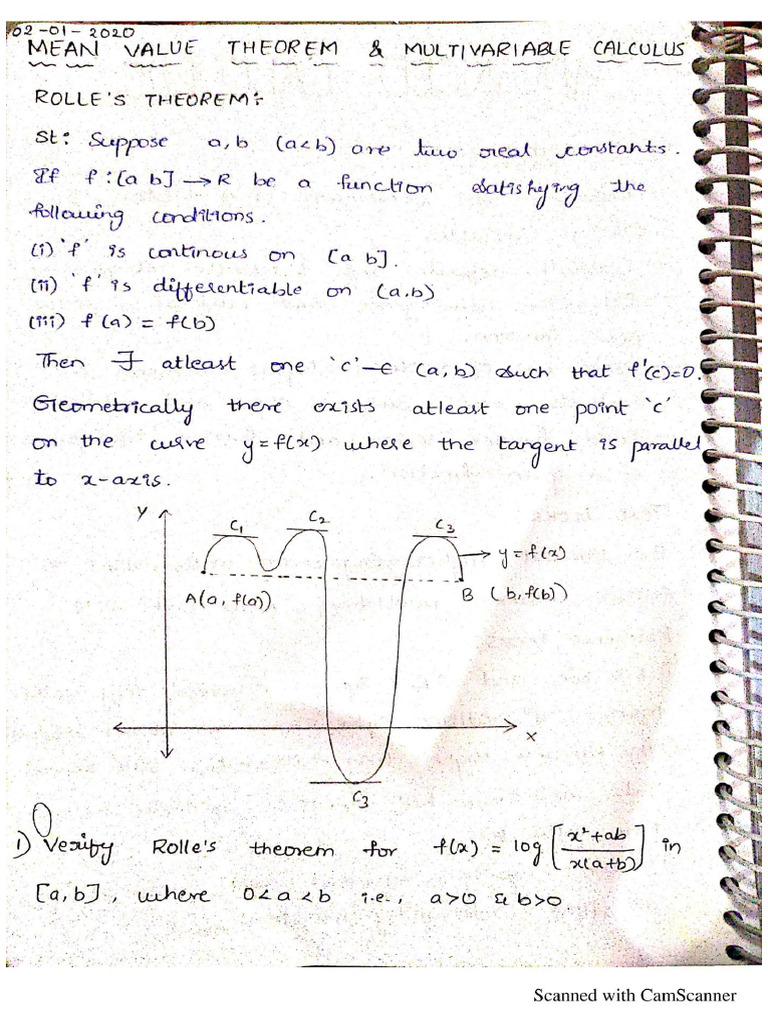 02-01-2020
MEAN VALUE THEOREM & MULTIVARIABLE CALCULUS
ROLLE'S THEOREM:-
St: Suppose a,b (a<b) are two real constants.
If f:[a b] → R be a function satisfying the
following conditions.
(i) 'f' is continous on [a b].
(ii) 'f' is differentiable on (a,b)
(iii) f(a) = f(b)
Then ∃ atleast one 'c' ∈ (a,b) such that f'(c)=0.
Geometrically there exists atleast one point 'c'
on the curve y=f(x) where the tangent is parallel
to x-axis.
y
C1 C2 C3
→ y=f(x)
A(a, f(a)) B (b, f(b))
x
C3
1) Verify Rolle's theorem for f(x) = log [x²+ab / x(a+b)] in
[a,b], where 0<a<b i.e., a>0 & b>0
Scanned with CamScanner